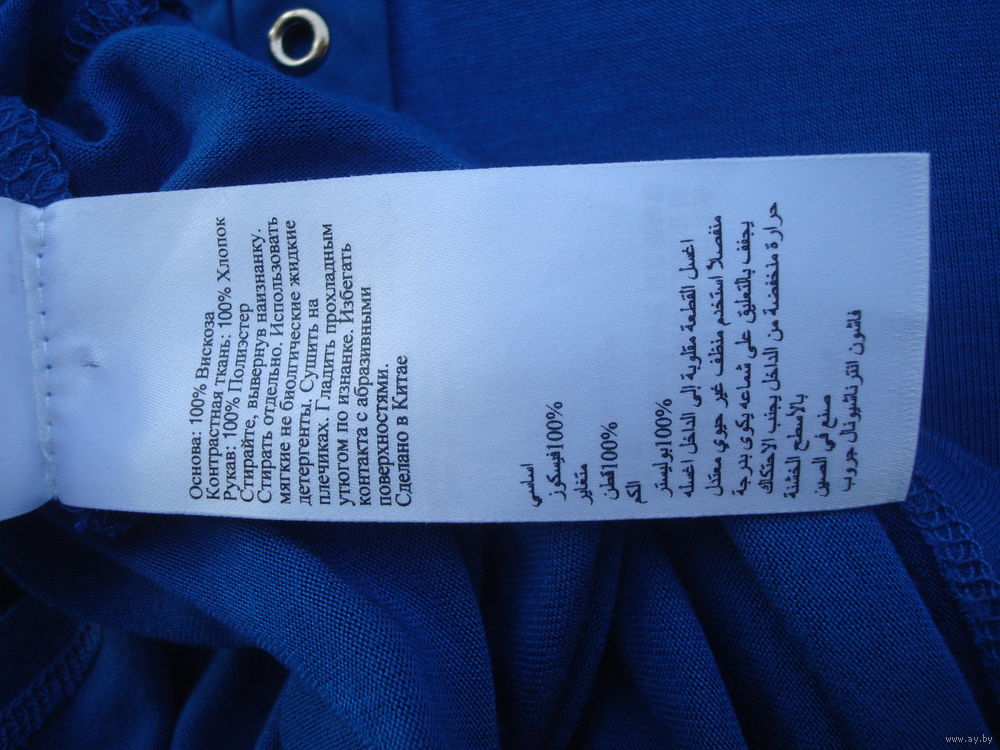 Основа: 100% Вискоза
Контрастная ткань: 100% Хлопок
Рукав: 100% Полиэстер
Стирайте, вывернув наизнанку.
Стирать отдельно. Использовать
мягкие не биолитические жидкие
детергенты. Сушить на
плечиках. Гладить прохладным
утюгом по изнанке. Избегать
контакта с абразивными
поверхностями.
Сделано в Китае
اساسي
100%فيسكوز
متغاير
100%قطن
الكم
100%بوليستر
اغسل القطعة مقلوبة إلى الداخل اغسله
منفصلاً استخدم منظف غير حيوي معتدل
يجفف بالتعليق على شماعه يكوى بدرجة
حرارة منخفضة من الداخل يجنب الاحتكاك
بالأسطح الخشنة
صنع في الصين
فاشون انترناشيونال جروب
www.ay.by